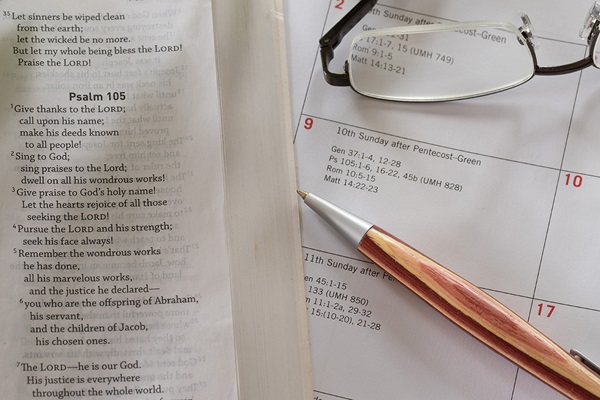 35 Let sinners be wiped clean
from the earth;
let the wicked be no more.
But let my whole being bless the LORD!
Praise the LORD!
Psalm 105
1 Give thanks to the LORD;
call upon his name;
make his deeds known
to all people!
2 Sing to God;
sing praises to the Lord;
dwell on all his wondrous works!
3 Give praise to God's holy name!
Let the hearts rejoice of all those
seeking the LORD!
4 Pursue the LORD and his strength;
seek his face always!
5 Remember the wondrous works
he has done,
all his marvelous works,
and the justice he declared—
6 you who are the offspring of Abraham,
his servant,
and the children of Jacob,
his chosen ones.
7 The LORD—he is our God.
His justice is everywhere
throughout the whole world.
2
9th Sunday after Pentecost–Green
-31
17:1-7, 15 (UMH 749)
Rom 9:1-5
Matt 14:13-21
9
10th Sunday after Pentecost–Green
Gen 37:1-4, 12-28
Ps 105:1-6, 16-22, 45b (UMH 828)
Rom 10:5-15
Matt 14:22-23
10
11th Sunday after
en 45:1-15
133 (UMH 850)
11:1-2a, 29-32
15:(10-20), 21-28
17